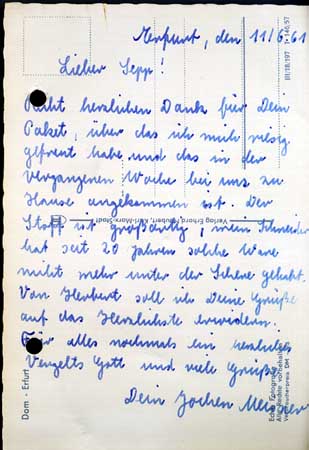 Erfurt, den 11/6.61
Lieber Sepp!
Recht herzlichen Dank für Dein
Paket, über das ich mich riesig
gefreut habe und das in der
vergangenen Woche bei uns zu
Hause angekommen ist. Der
Stoff ist großartig, mein Schneider
hat seit 20 Jahren solche Ware
nicht mehr unter der Schere gehabt.
Von Herbert soll ich Deine Grüße
auf das Herzlichste erwidern.
Für alles nochmals ein herzliches
Vergelts Gott und viele Grüße
Dein Jochen
III/18/197 A 140/57
Verlag Erhard Neubert, Karl-Marx-Stadt
Dom - Erfurt
Echte Fotografie
Alle Rechte vorbehalten
Verbraucherpreis DM